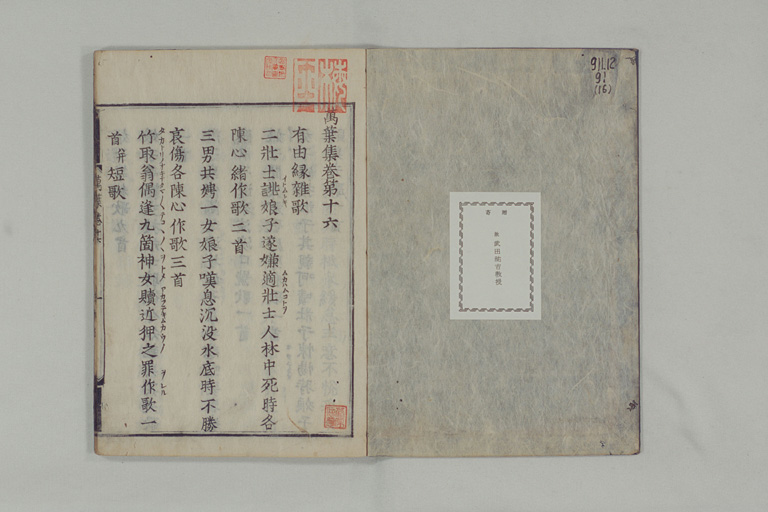 911.12
91
(16)
寄贈
故 武田祐吉教授
萬葉集巻第十六
有由縁雜歌
二壯士誂娘子遂嫌適壯士人林中死時各
陳心緒作歌二首
三男共娉一女娘子嘆息沉没水底時不勝
哀傷各陳心作歌三首
竹取翁偶逢九箇神女贖近狎之罪作歌一
首并短歌